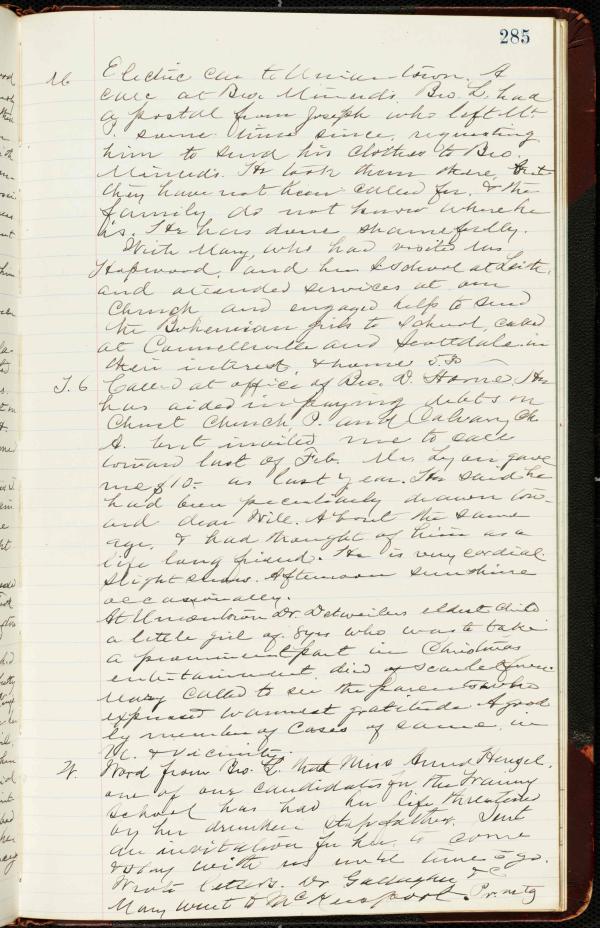 285
M. Electric car to Uniontown. A
call at Bro. Minerd's. Bro. L. had
a postal from Joseph who left Mt.
some time since, requesting
him to send his clothes to Bro.
Minerd's. He took them there, but
they have not been called for. & the
family do not know where he
is. He has done shamefully.
With Mary, who had visited
Hopwood, and her S School at Leith,
and attended services at our
Church and engaged help to send
the Bohemian girls to School, called
at Connellsville and Scottdale in
their interest, & home 5.30
T. 6 Called at office of Bro. D. Horne. He
has aided in paying debts on
Christ Church, P. and Calvary Ch
A. but invited me to call
toward last of Feb. Mr. Lyon gave
me $10- as last year. He said he
had been peculiarly drawn tow-
ard dear Will. About the same
age, & had thought of him as a
life long friend. He is very cordial.
Slight snow. Afternoon sunshine
occasionally.
At Uniontown Dr. Detweiler's eldest child
a little girl of 8 yrs who was to take
a prominent part in Christmas
entertainment, died of Scarlet fever.
Mary called to see the parents who
expressed warmest gratitude. A good
ly number of cases of same in
U. & vicinity.
W. Word from Bro. L. that Miss Anna
one of our candidates for the Training
School has had her life threatened
by her drunken stepfather. Sent
an invitation for her to come
& stay with us until time to go.
Wrote letters. Dr. Gallagher &c
Mary went to McKeesport. Pr. mtg